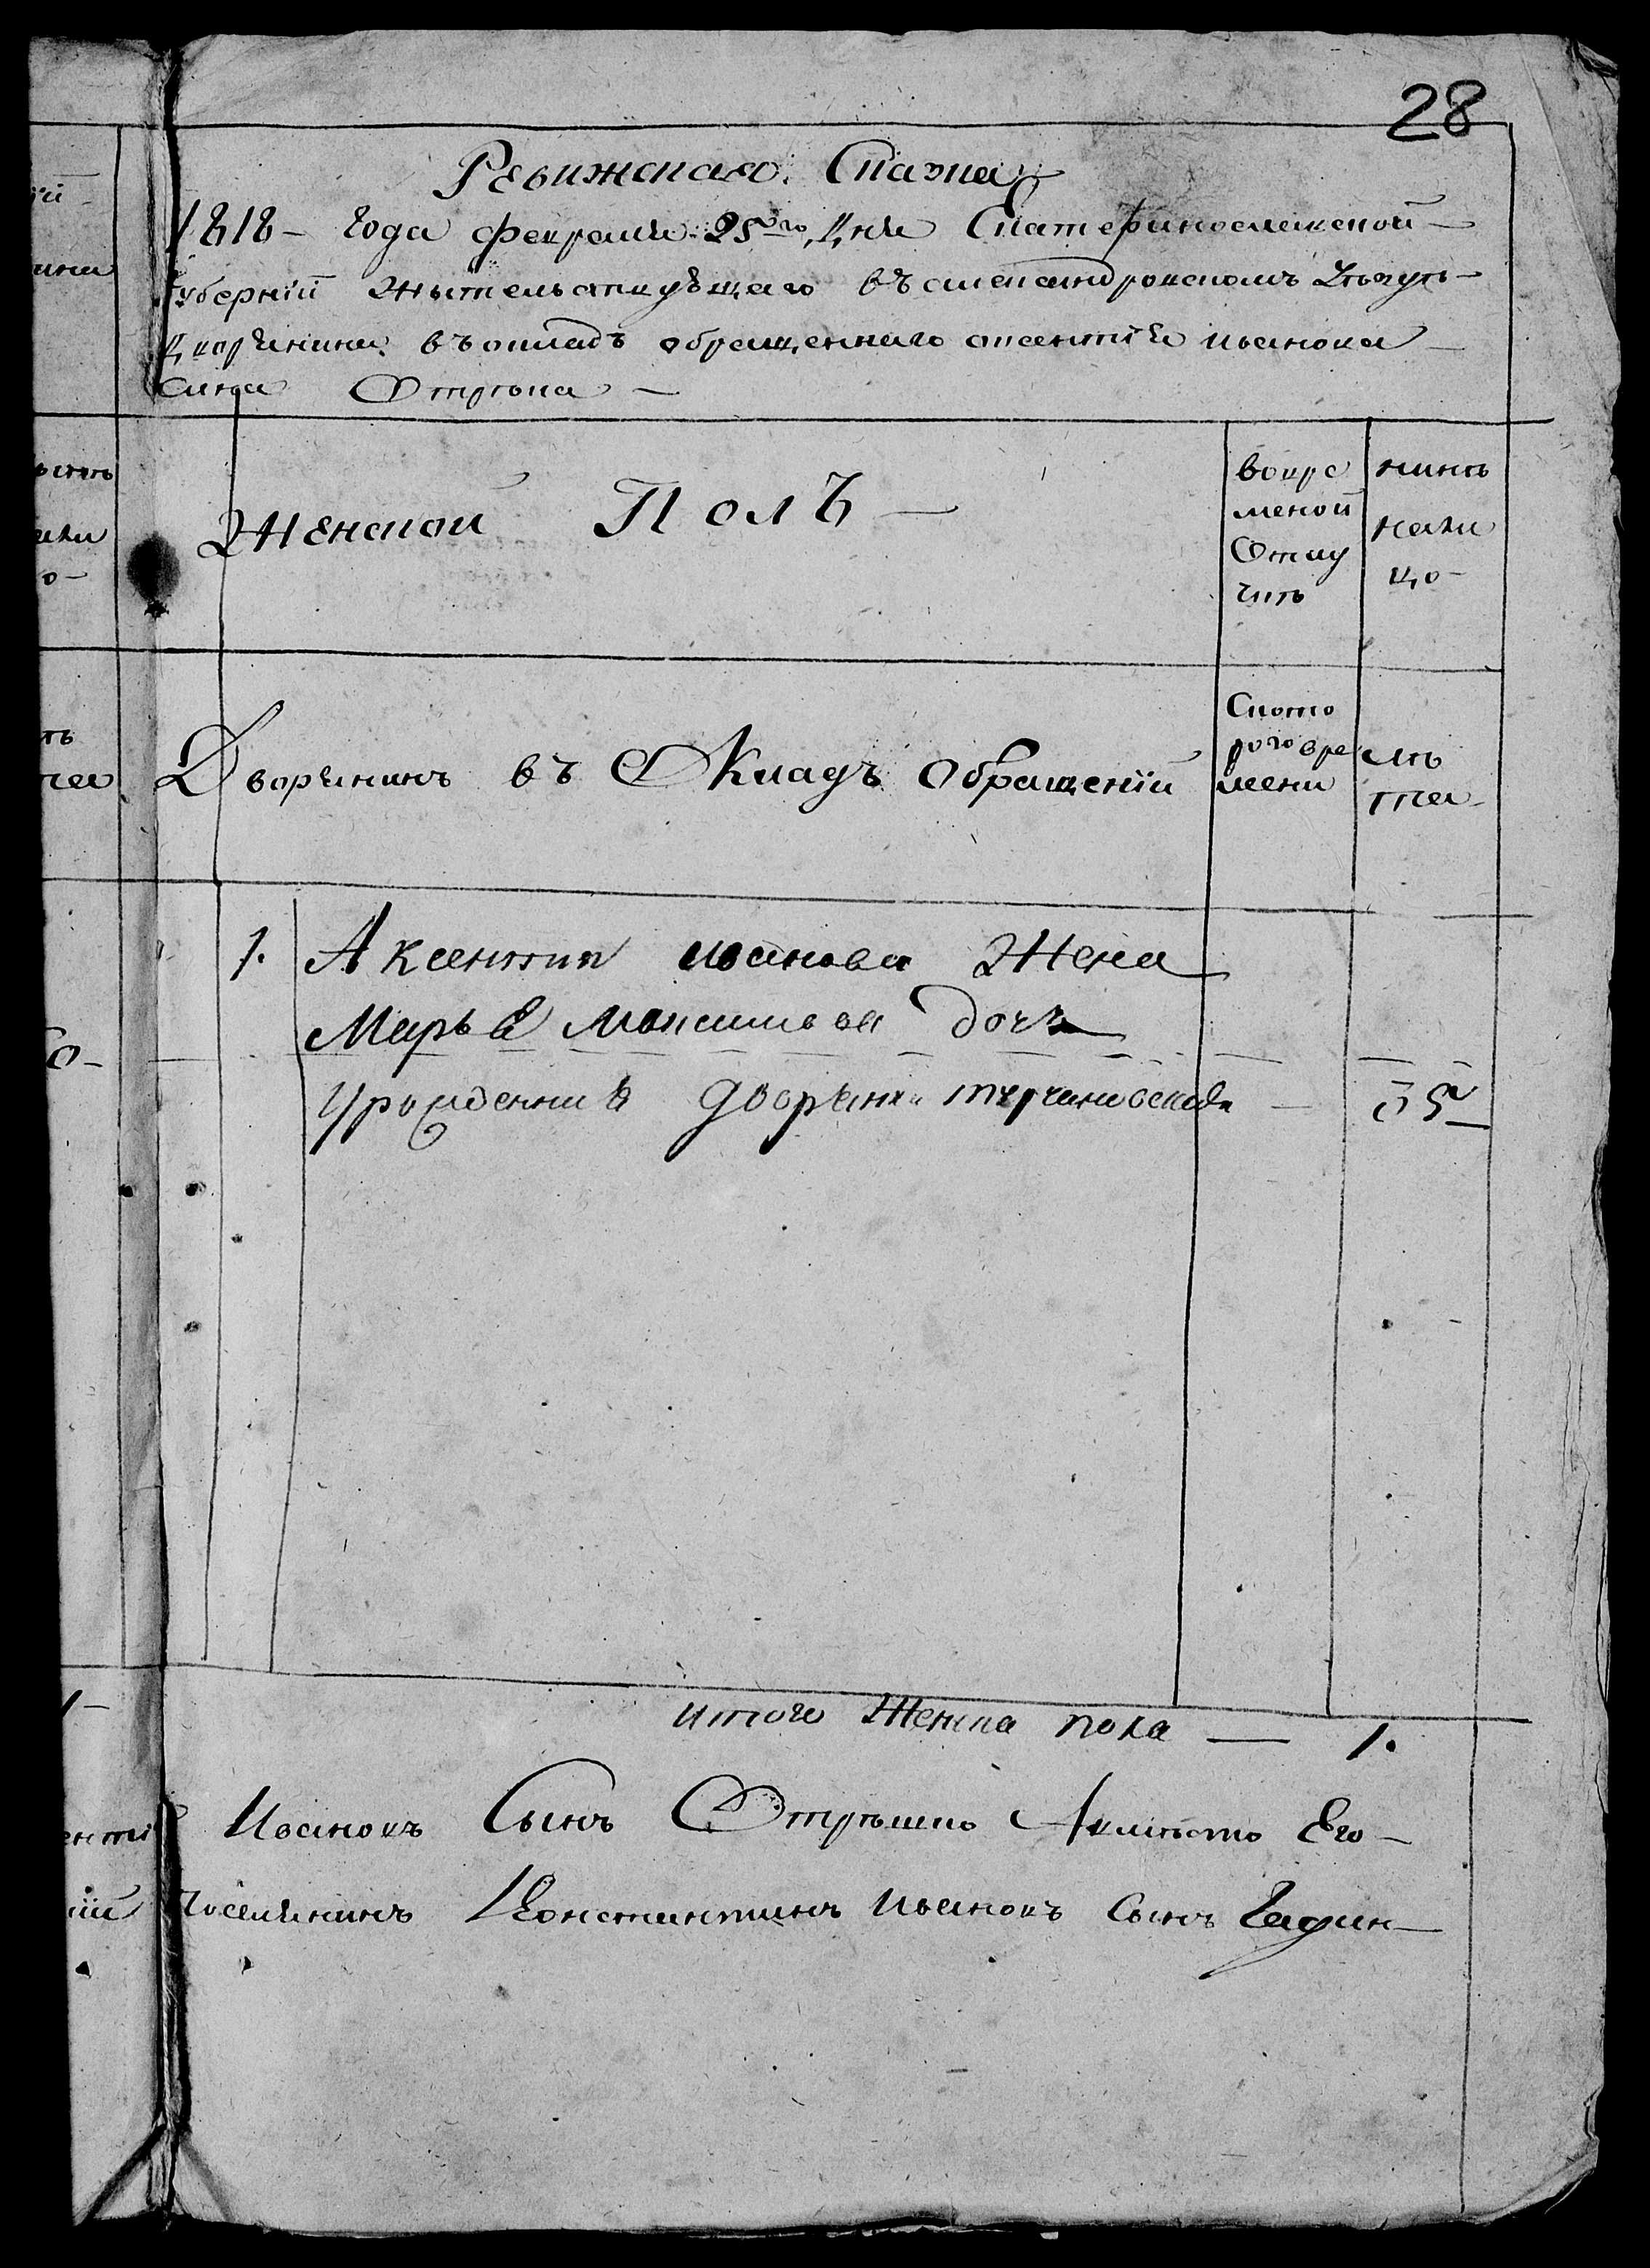 28
Ревижская Скажка
1818 – года февраля 25го дня Екатеринославской –
губернїи жытельствующаго въ александровскомъ уѣзде –
дворянина въ окладъ обращеннаго аксентїя иванова –
сына –
Женской Полъ –
вовре
меной
Отлу
чкѣ
нынѣ
нали
цо –
Дворянинъ въ Окладъ Обращенїй
Ското
рого вре
мени
лѣ
та
1. Аксентия иванова Жена
Марья Максимова дочь
урожденная дворянка – 35
итого Женска пола — 1.
Ивановъ Сынъ Авместо Его –
поселянинъ Константинъ Ивановъ Сынъ